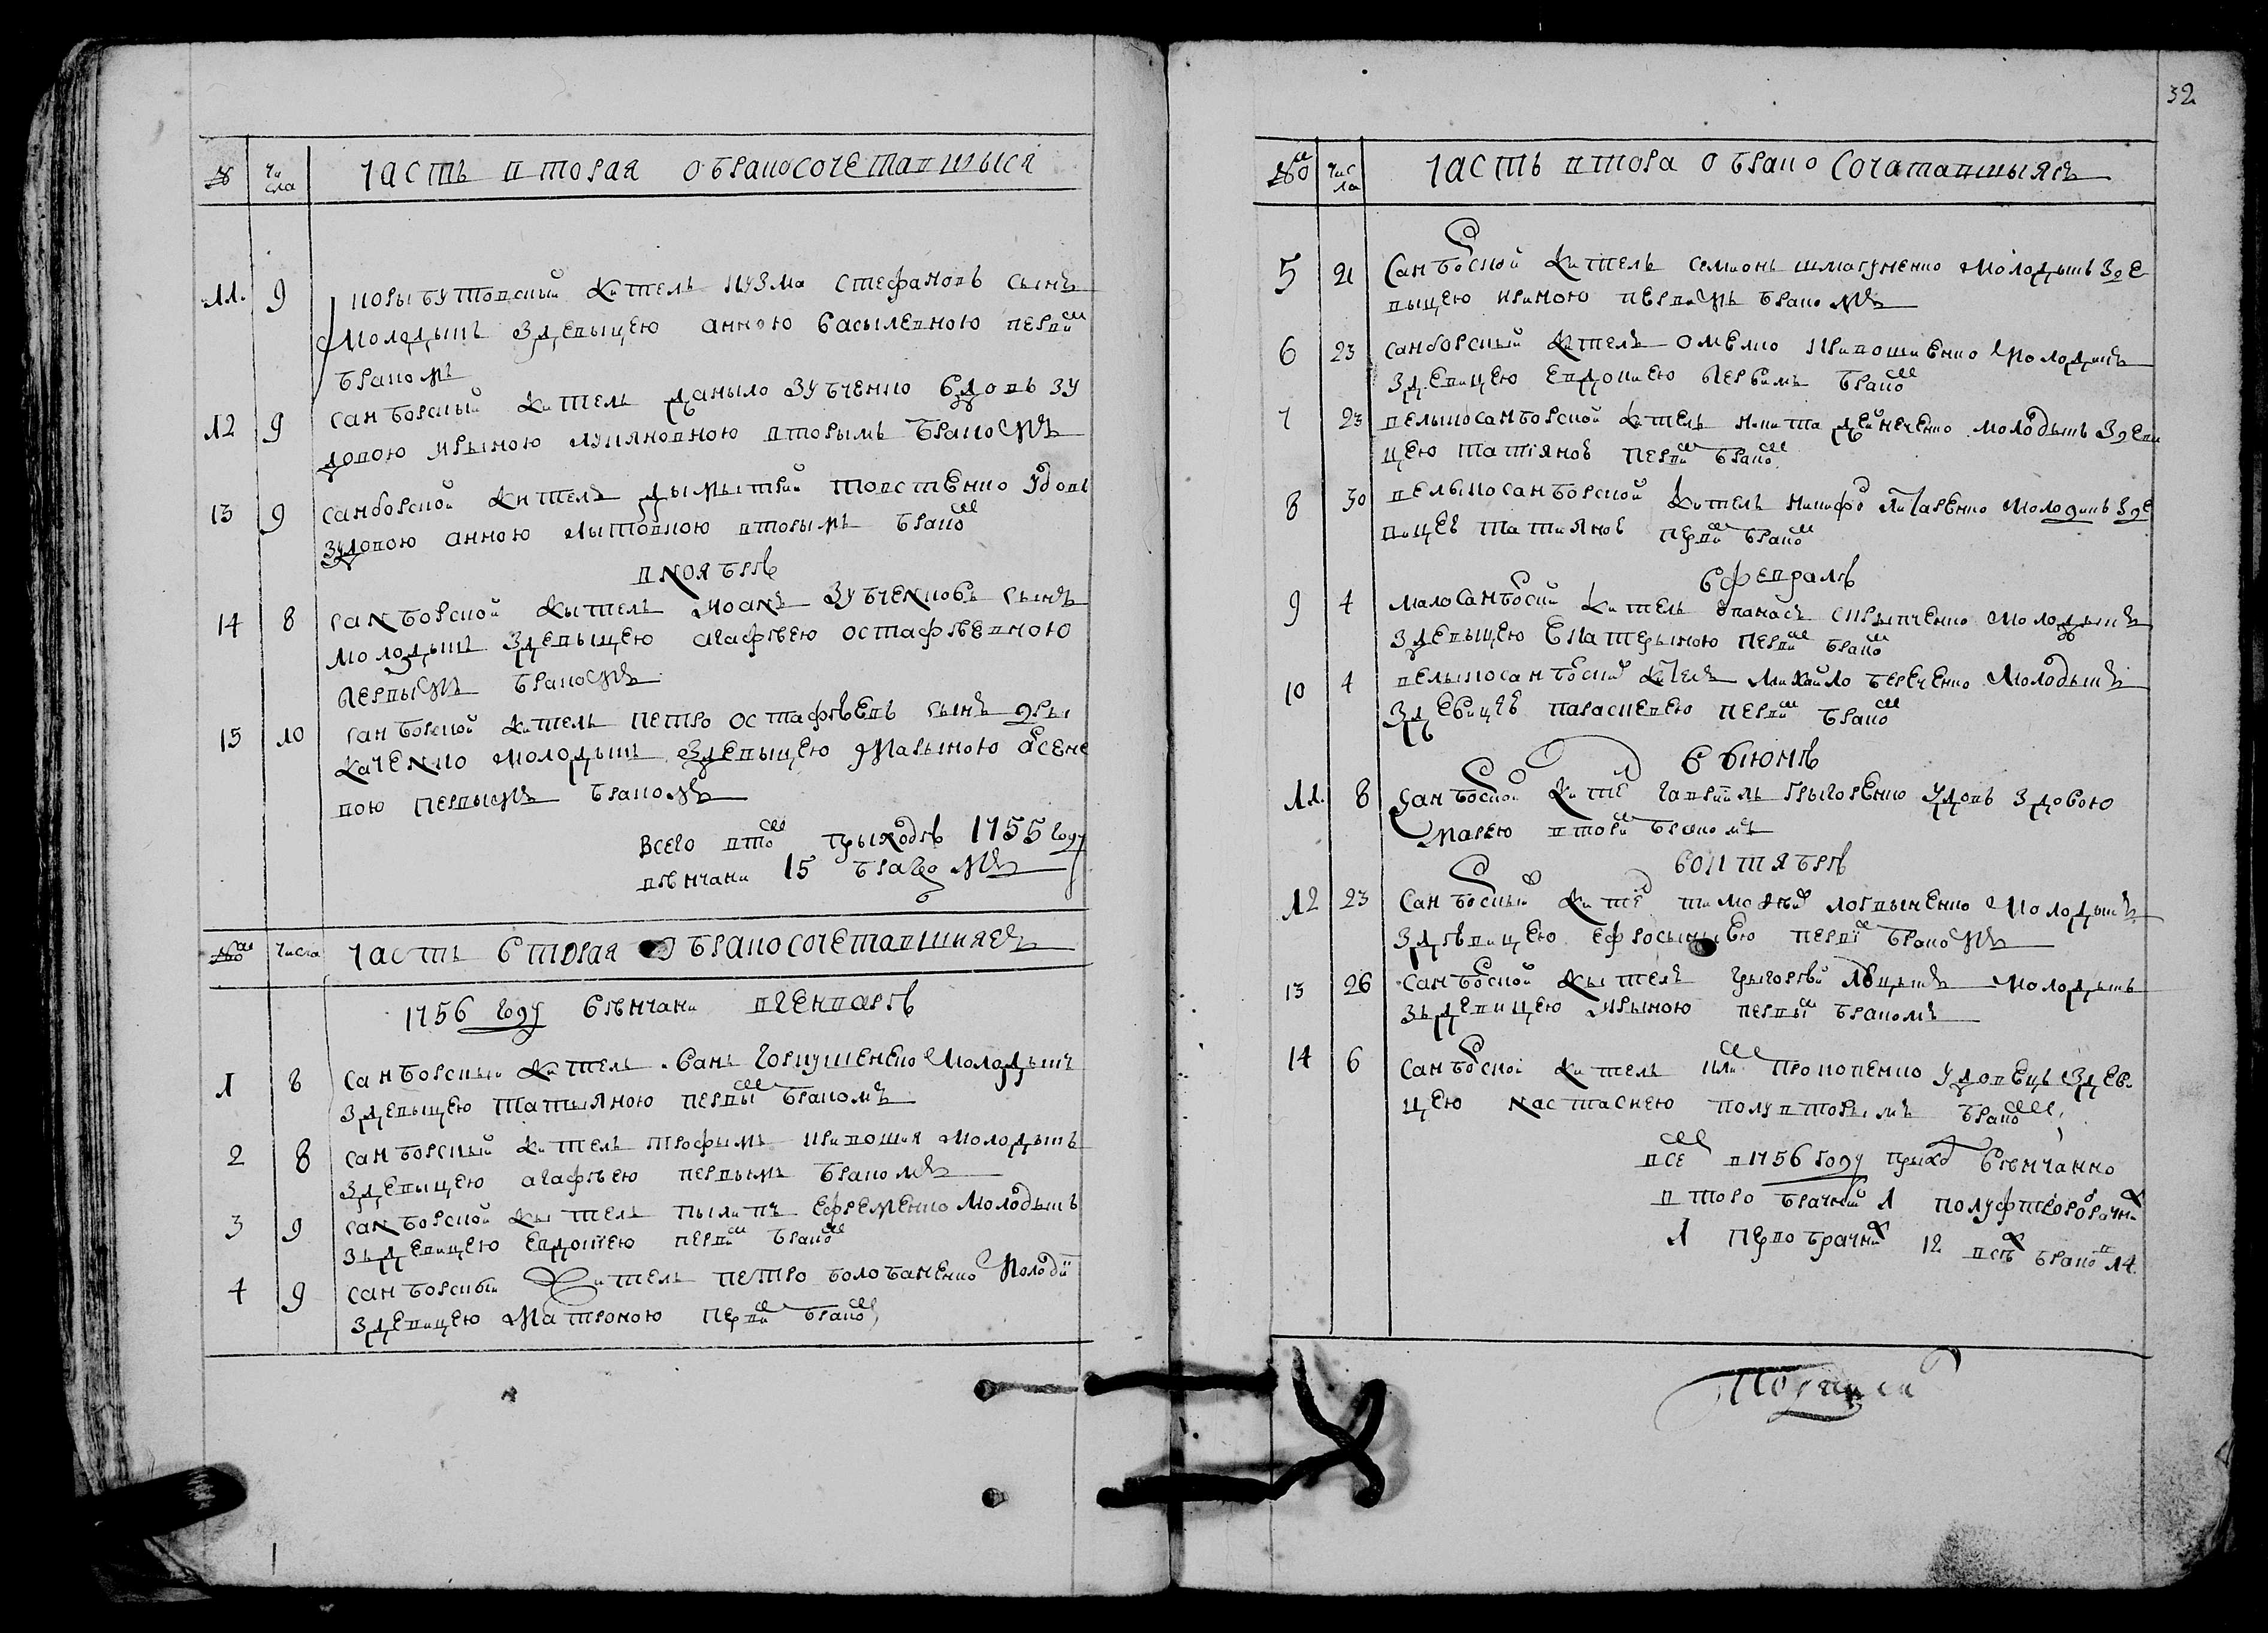 № числа часть вторая о бракосочетавшыся
11. 9 корыбутовский житель кузма стефановъ сынъ
молодышъ здевыцею анною василевною первим
бракомъ
12 9 санборский житель даныло зубченко вдовъ зу
довою ирыною лукяновною вторымъ бракомъ
13 9 санборской житель дымытрий товстенко удовъ
зудовою анною лытовною вторымъ браком
в ноябрѣ
14 8 санборской жытель иоанъ зубченковъ сынъ
молодышъ здевыцею агафѣею остафѣевною
первымъ бракомъ
15 10 санборской житель петро остафѣевъ сынъ дры
жаченко молодышъ здевыцею марыною
вою первымъ бракомъ
всего втом прыходѣ 1755 году
вѣнчани 15 браковъ
№ числа часть вторая о бракосочетавшияся
1756 году вѣнчани вгенварѣ
1 8 санборский житель иванъ горкушенко молодышъ
здевыцею татыяною первым бракомъ
2 8 санборский житель трофымъ кривошия молодышъ
здевыцею агафѣею первымъ бракомъ
3 9 санборской жытель пылипъ ефременко молодышъ
зъдевицею евдокиею первим браком
4 9 санборский житель петро болобаненко молоди
здевицею матроною первим браком
32
№ числа часть втора о бракосочатавшыяся
5 21 санборской житель семионъ шматуненко молодышъ зде
выцею ириною первимъ бракомъ
6 23 санборский житель омелко кривошиенко молодишъ
здевицею евдокиею первимъ браком
7 23 великосанборской житель никита дейнеченко молодышъ здеви
цею татіяною первим браком
8 30 великосанборской житель никифор молодишъ зде
вицею татияною первим браком
в февралѣ
9 4 малосанборский житель опанасъ скрыпченко молодышъ
здевыцею екатерыною первим браком
10 4 великосанборский житель михайло береченко молодышъ
здевицею параскевею первим браком
в июнѣ
11. 8 санборской жител гаврийлъ грыгоренко удовъ здовою
мариею втори бракомъ
воктябрѣ
12 23 санборский жител тимофий логвыненко молодышъ
здѣвицею ефросыниею перві бракомъ
13 26 санборской жытель грыгорѣй молодышъ
зъдевицею ирыною первы бракомъ
14 6 санборской житель илия прокопенко удовецъ здеви
цею настасиею полувторымъ браком
всех в 1756 году приход вѣнчанно
второ брачний 1 полуфторобрачни
1 перво брачних 12 всѣх браков 14.